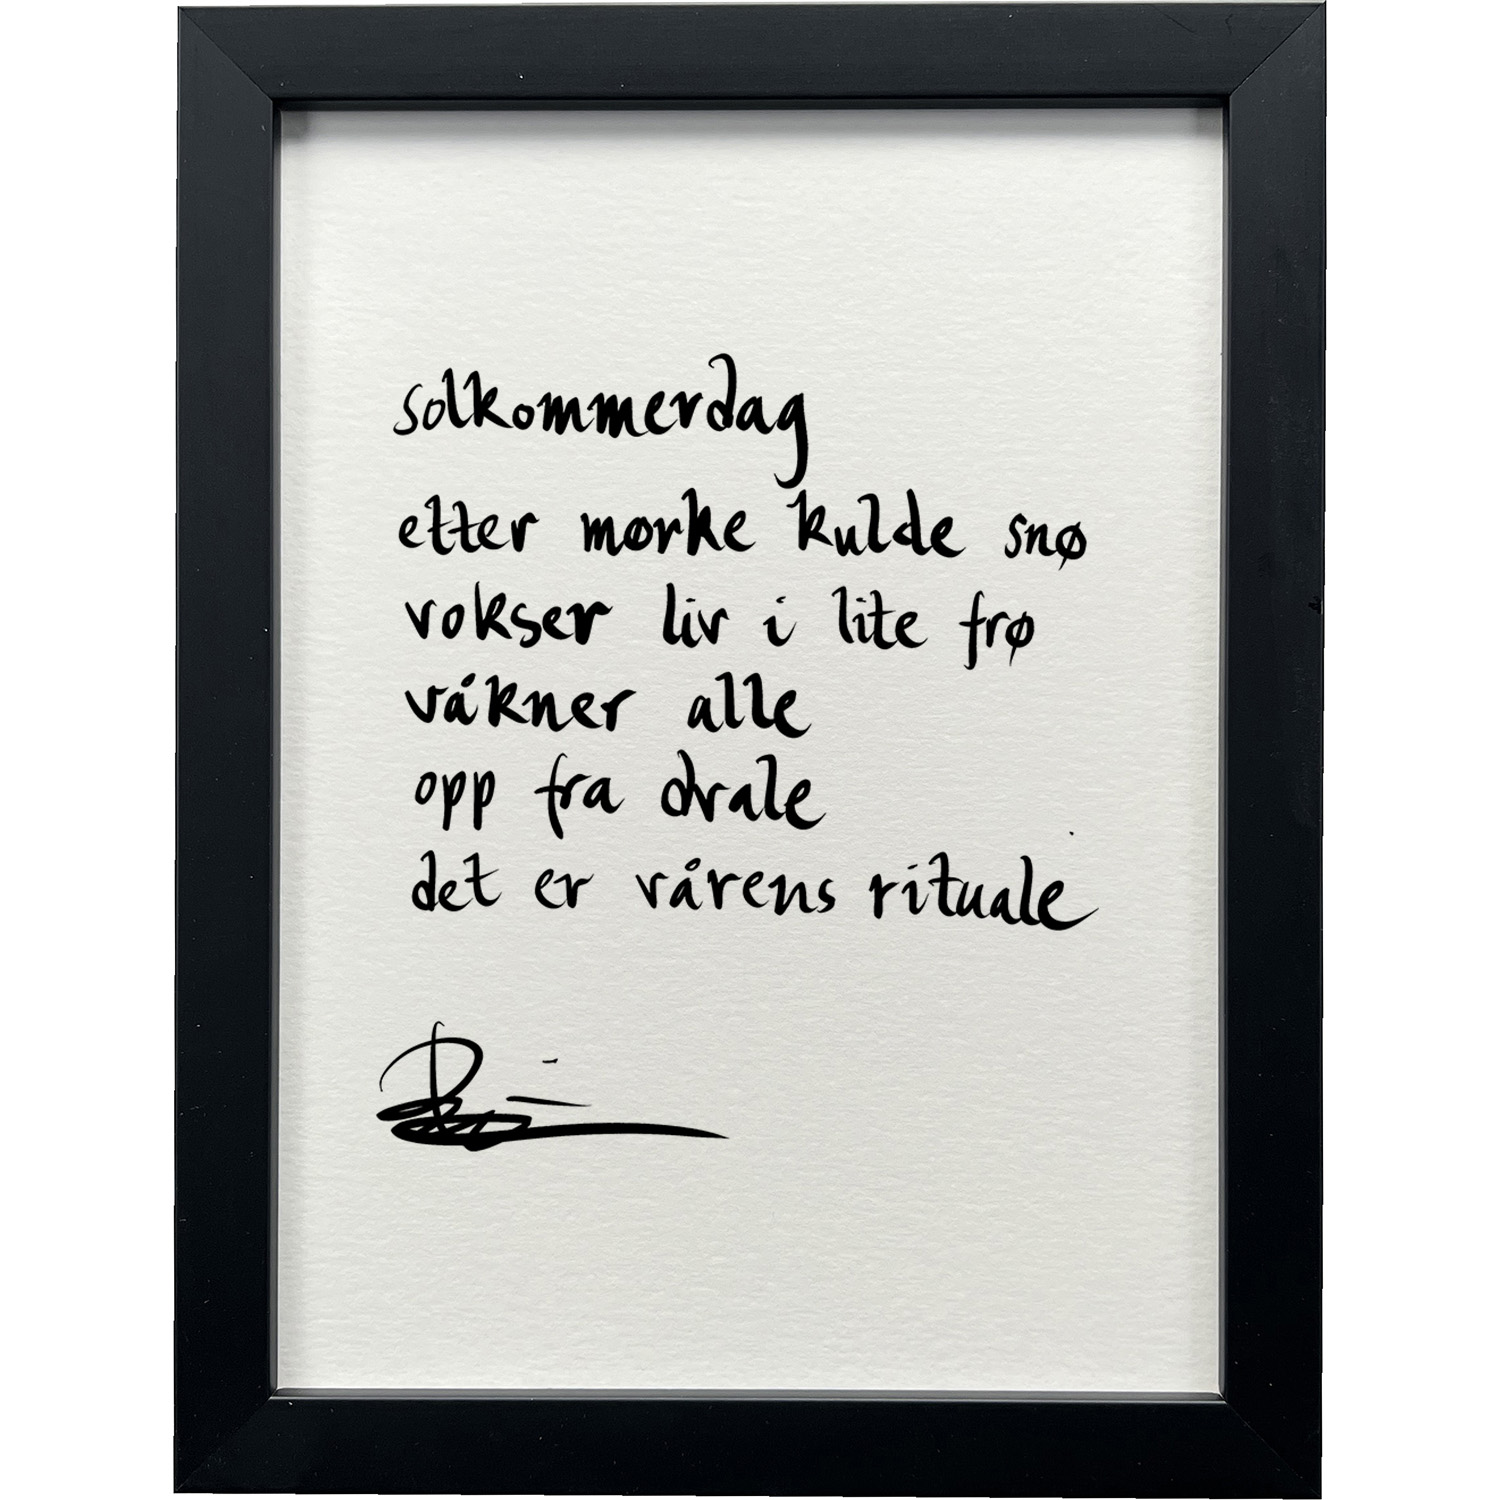 solkommerdag
etter mørke kulde snø
vokser liv i lite frø
våkner alle
opp fra dvale
det er vårens rituale